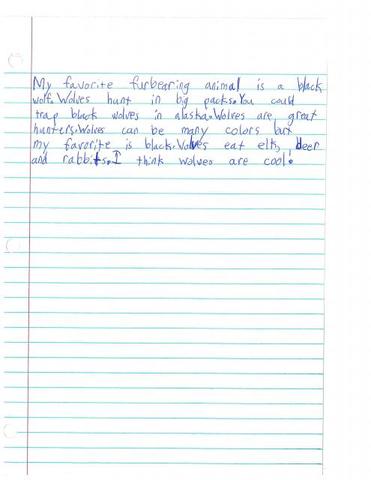 My favorite furbearing animal is a black
wolf. Wolves hunt in big packs. You could
trap black wolves in alaska. Wolves are great
hunters. Wolves can be many colors but
my favorite is black. Wolves eat elk, deer
and rabbits. I think wolves are cool!